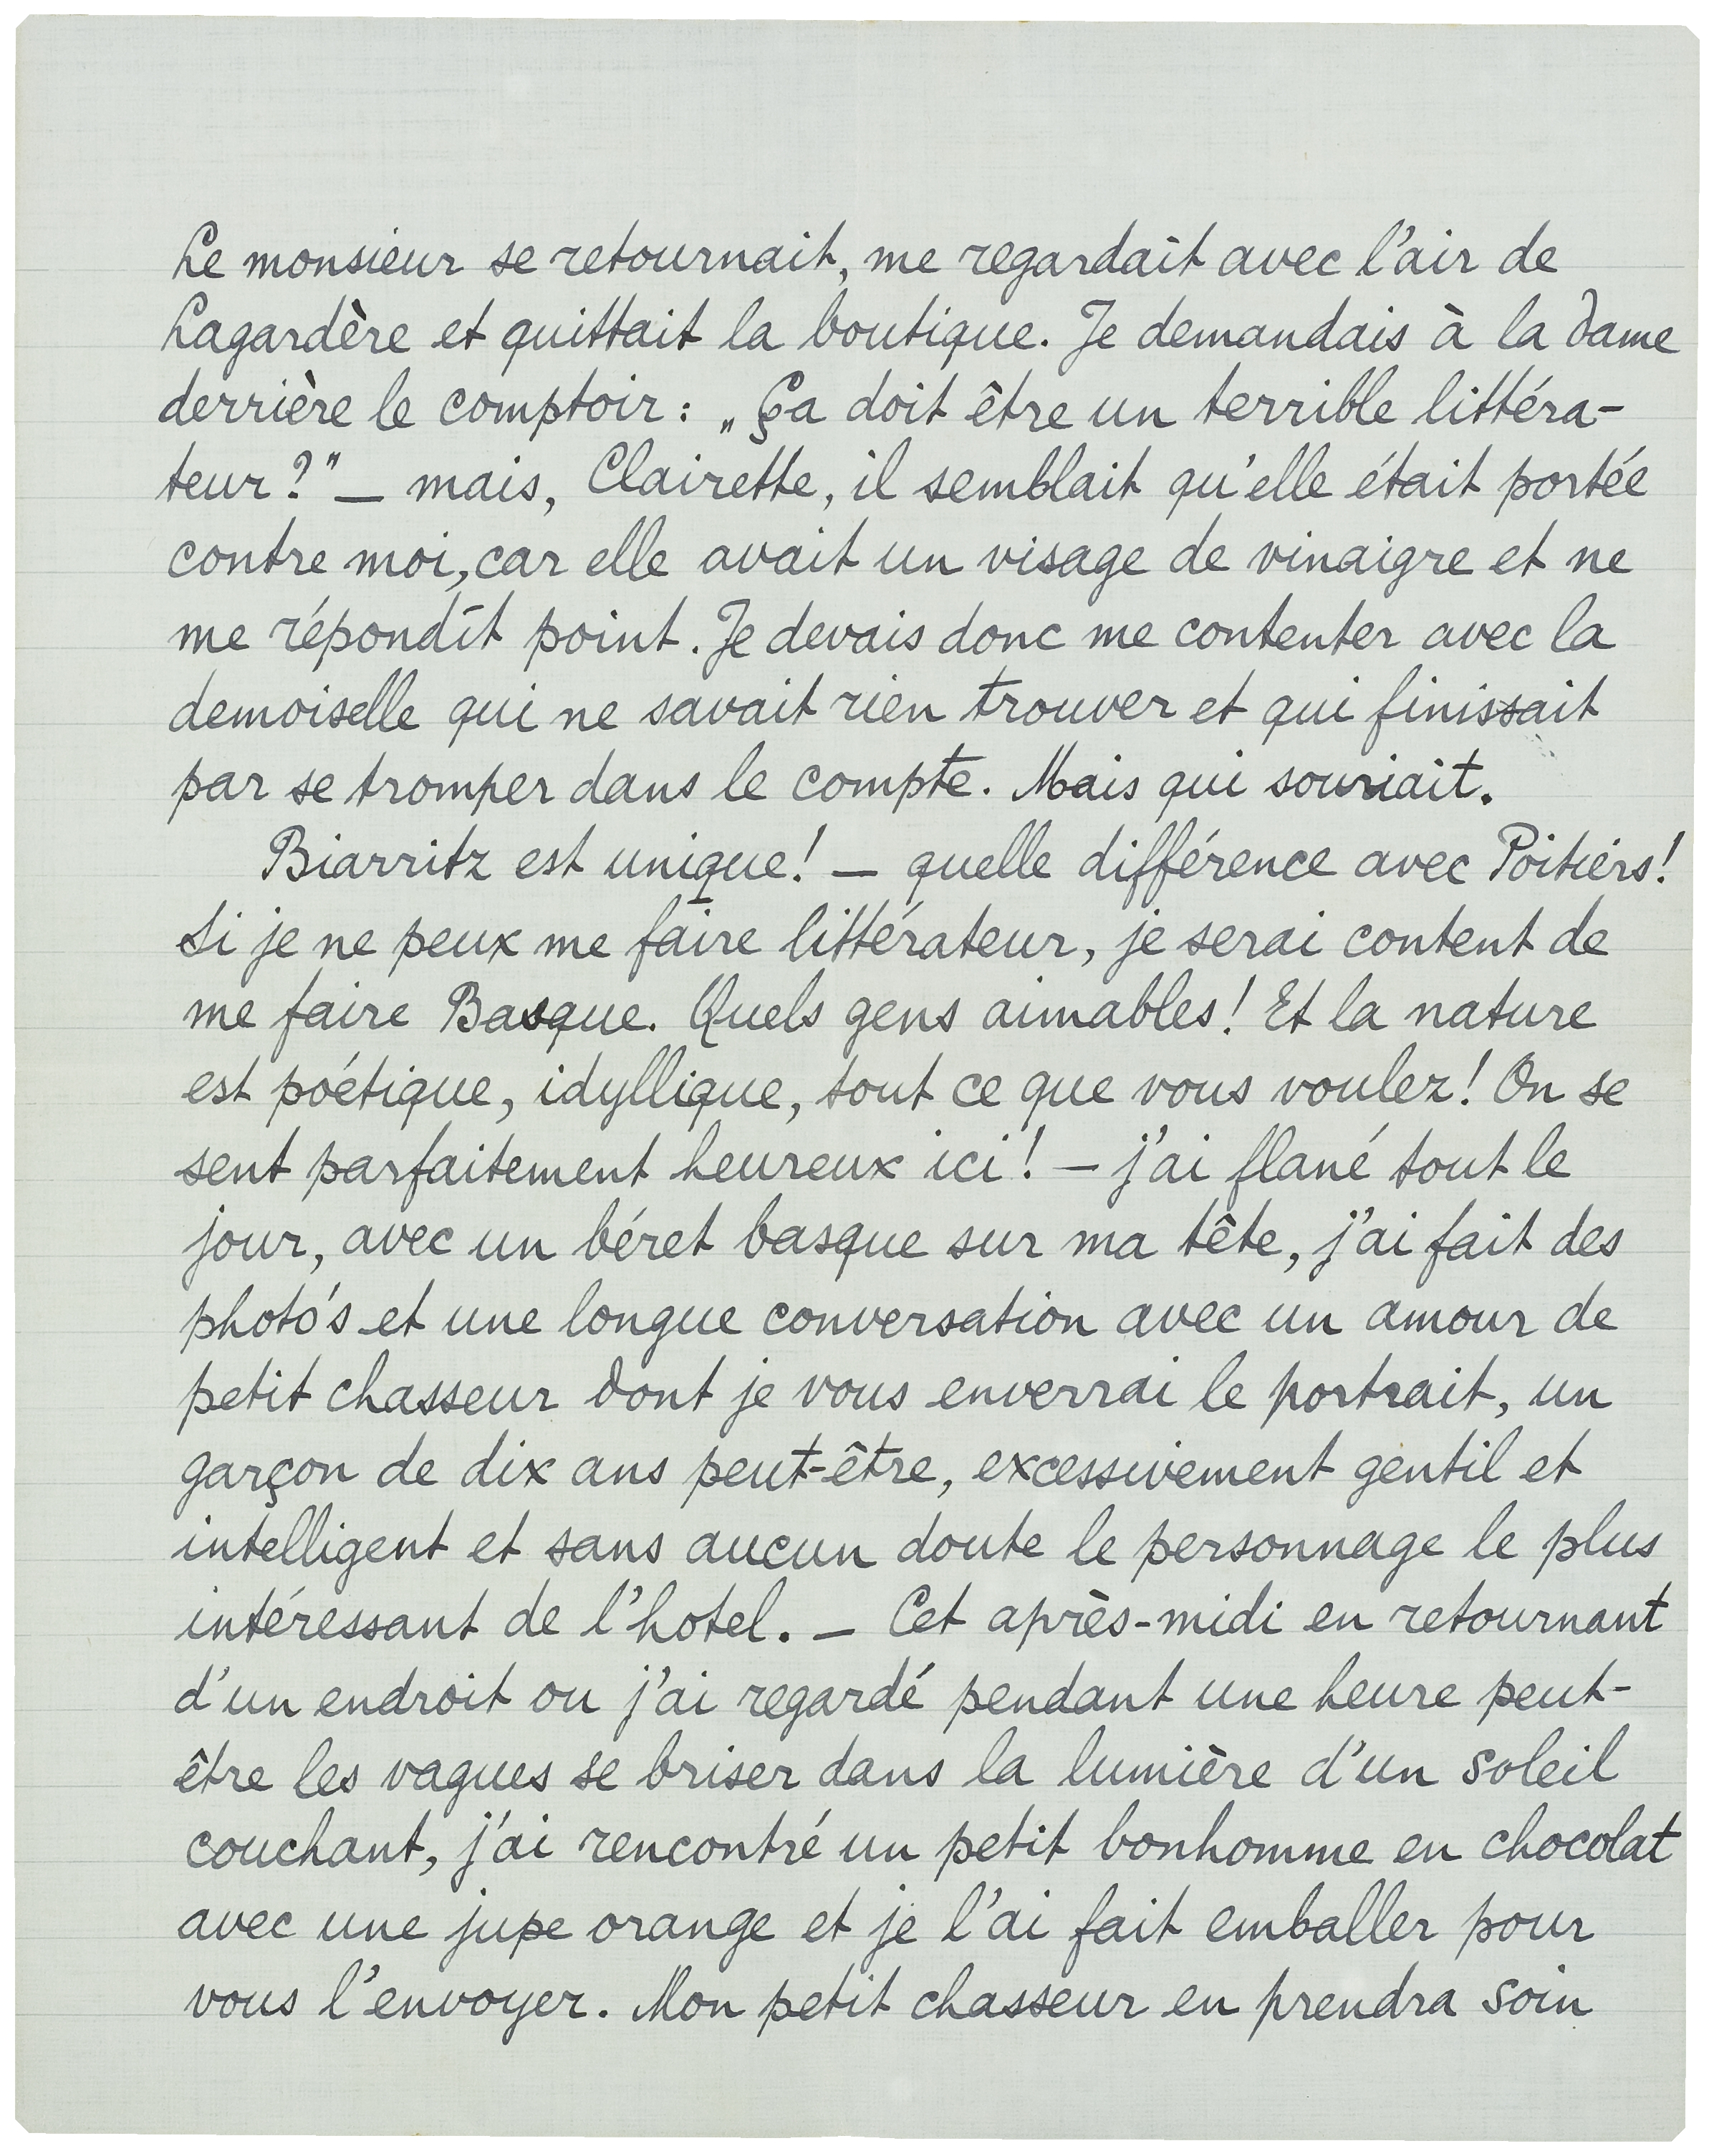 Le monsieur se retournait, me regardait avec l'air de
Lagardère et quittait la boutique. Je demandais à la dame
derrière le comptoir : „Ça doit être un terrible littéra-
teur ?" — mais, Clairette, il semblait qu'elle était portée
contre moi, car elle avait un visage de vinaigre et ne
me répondît point. Je devais donc me contenter avec la
demoiselle qui ne savait rien trouver et qui finissait
par se tromper dans le compte. Mais qui souriait.
Biarritz est unique ! — quelle différence avec Poitiers !
Si je ne peux me faire littérateur, je serai content de
me faire Basque. Quels gens aimables ! Et la nature
est poétique, idyllique, tout ce que vous voulez ! On se
sent parfaitement heureux ici ! — j'ai flané tout le
jour, avec un béret basque sur ma tête, j'ai fait des
photo's et une longue conversation avec un amour de
petit chasseur dont je vous enverrai le portrait, un
garçon de dix ans peut-être, excessivement gentil et
intelligent et sans aucun doute le personnage le plus
intéressant de l'hotel. — Cet après-midi en retournant
d'un endroit ou j'ai regardé pendant une heure peut-
être les vagues se briser dans la lumière d'un soleil
couchant, j'ai rencontré un petit bonhomme en chocolat
avec une jupe orange et je l'ai fait emballer pour
vous l'envoyer. Mon petit chasseur en prendra soin